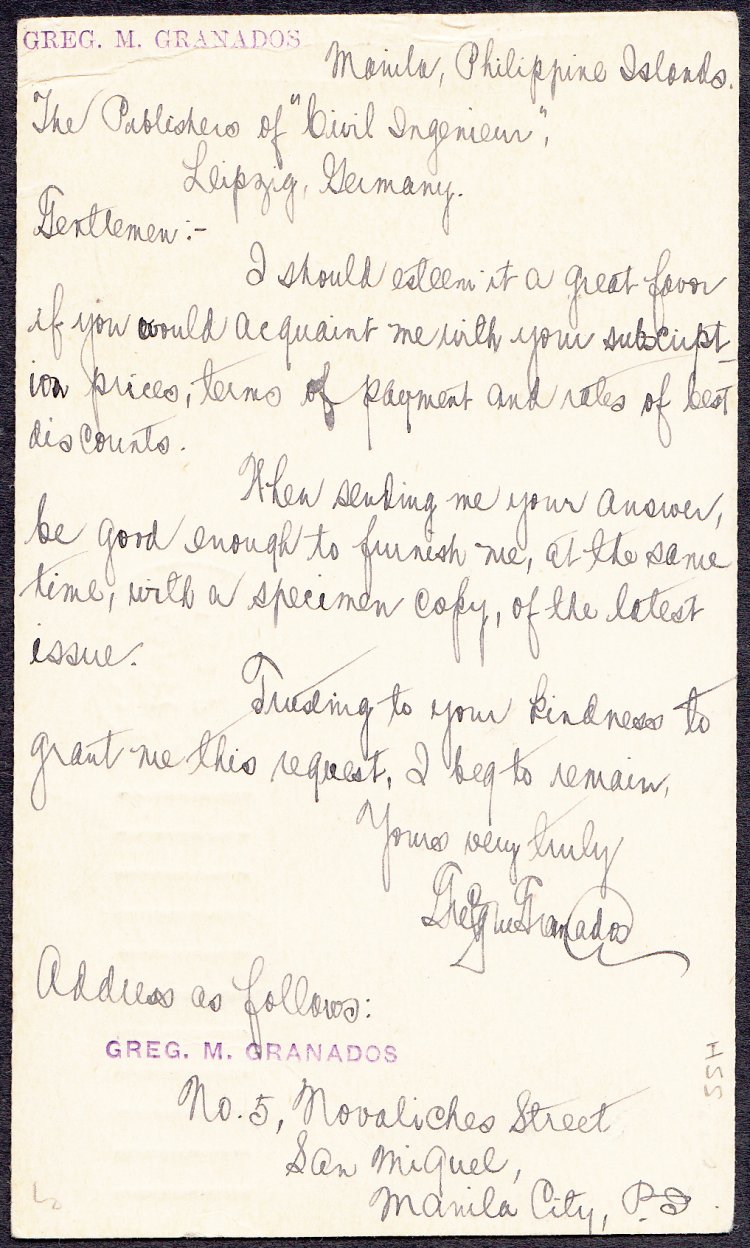 GREG. M. GRANADOS
Manila, Philippine Islands.
The Publishers of "Civil Ingenieur",
Leipzig, Germany.
Gentlemen:-
I should esteem it a great favor
if you would acquaint me with your subcript-
ion prices, terms of payment and rates of best
discounts.
When sending me your answer,
be good enough to furnish me, at the same
time, with a specimen copy, of the latest
issue.
Trusting to your kindness to
grant me this request, I beg to remain,
Yours very truly
Greg M Granados
Address as follows:
GREG. M. GRANADOS
No. 5, Novaliches Street
San Miguel,
Manila City, P.I.
HSS